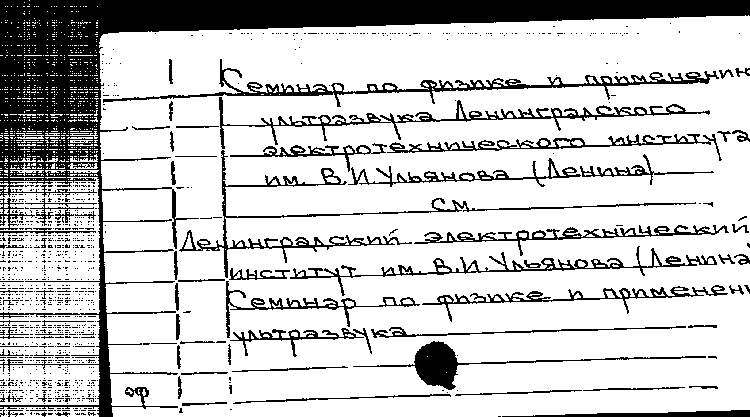 Семинар по физике и применению
ультразвука Ленинградского
электротехнического института
им. В.И.Ульянова (Ленина)
см.
Ленинградский электротехнический
институт им. В.И.Ульянова (Ленина
Семинар по физике и применени
ультразвука
оф